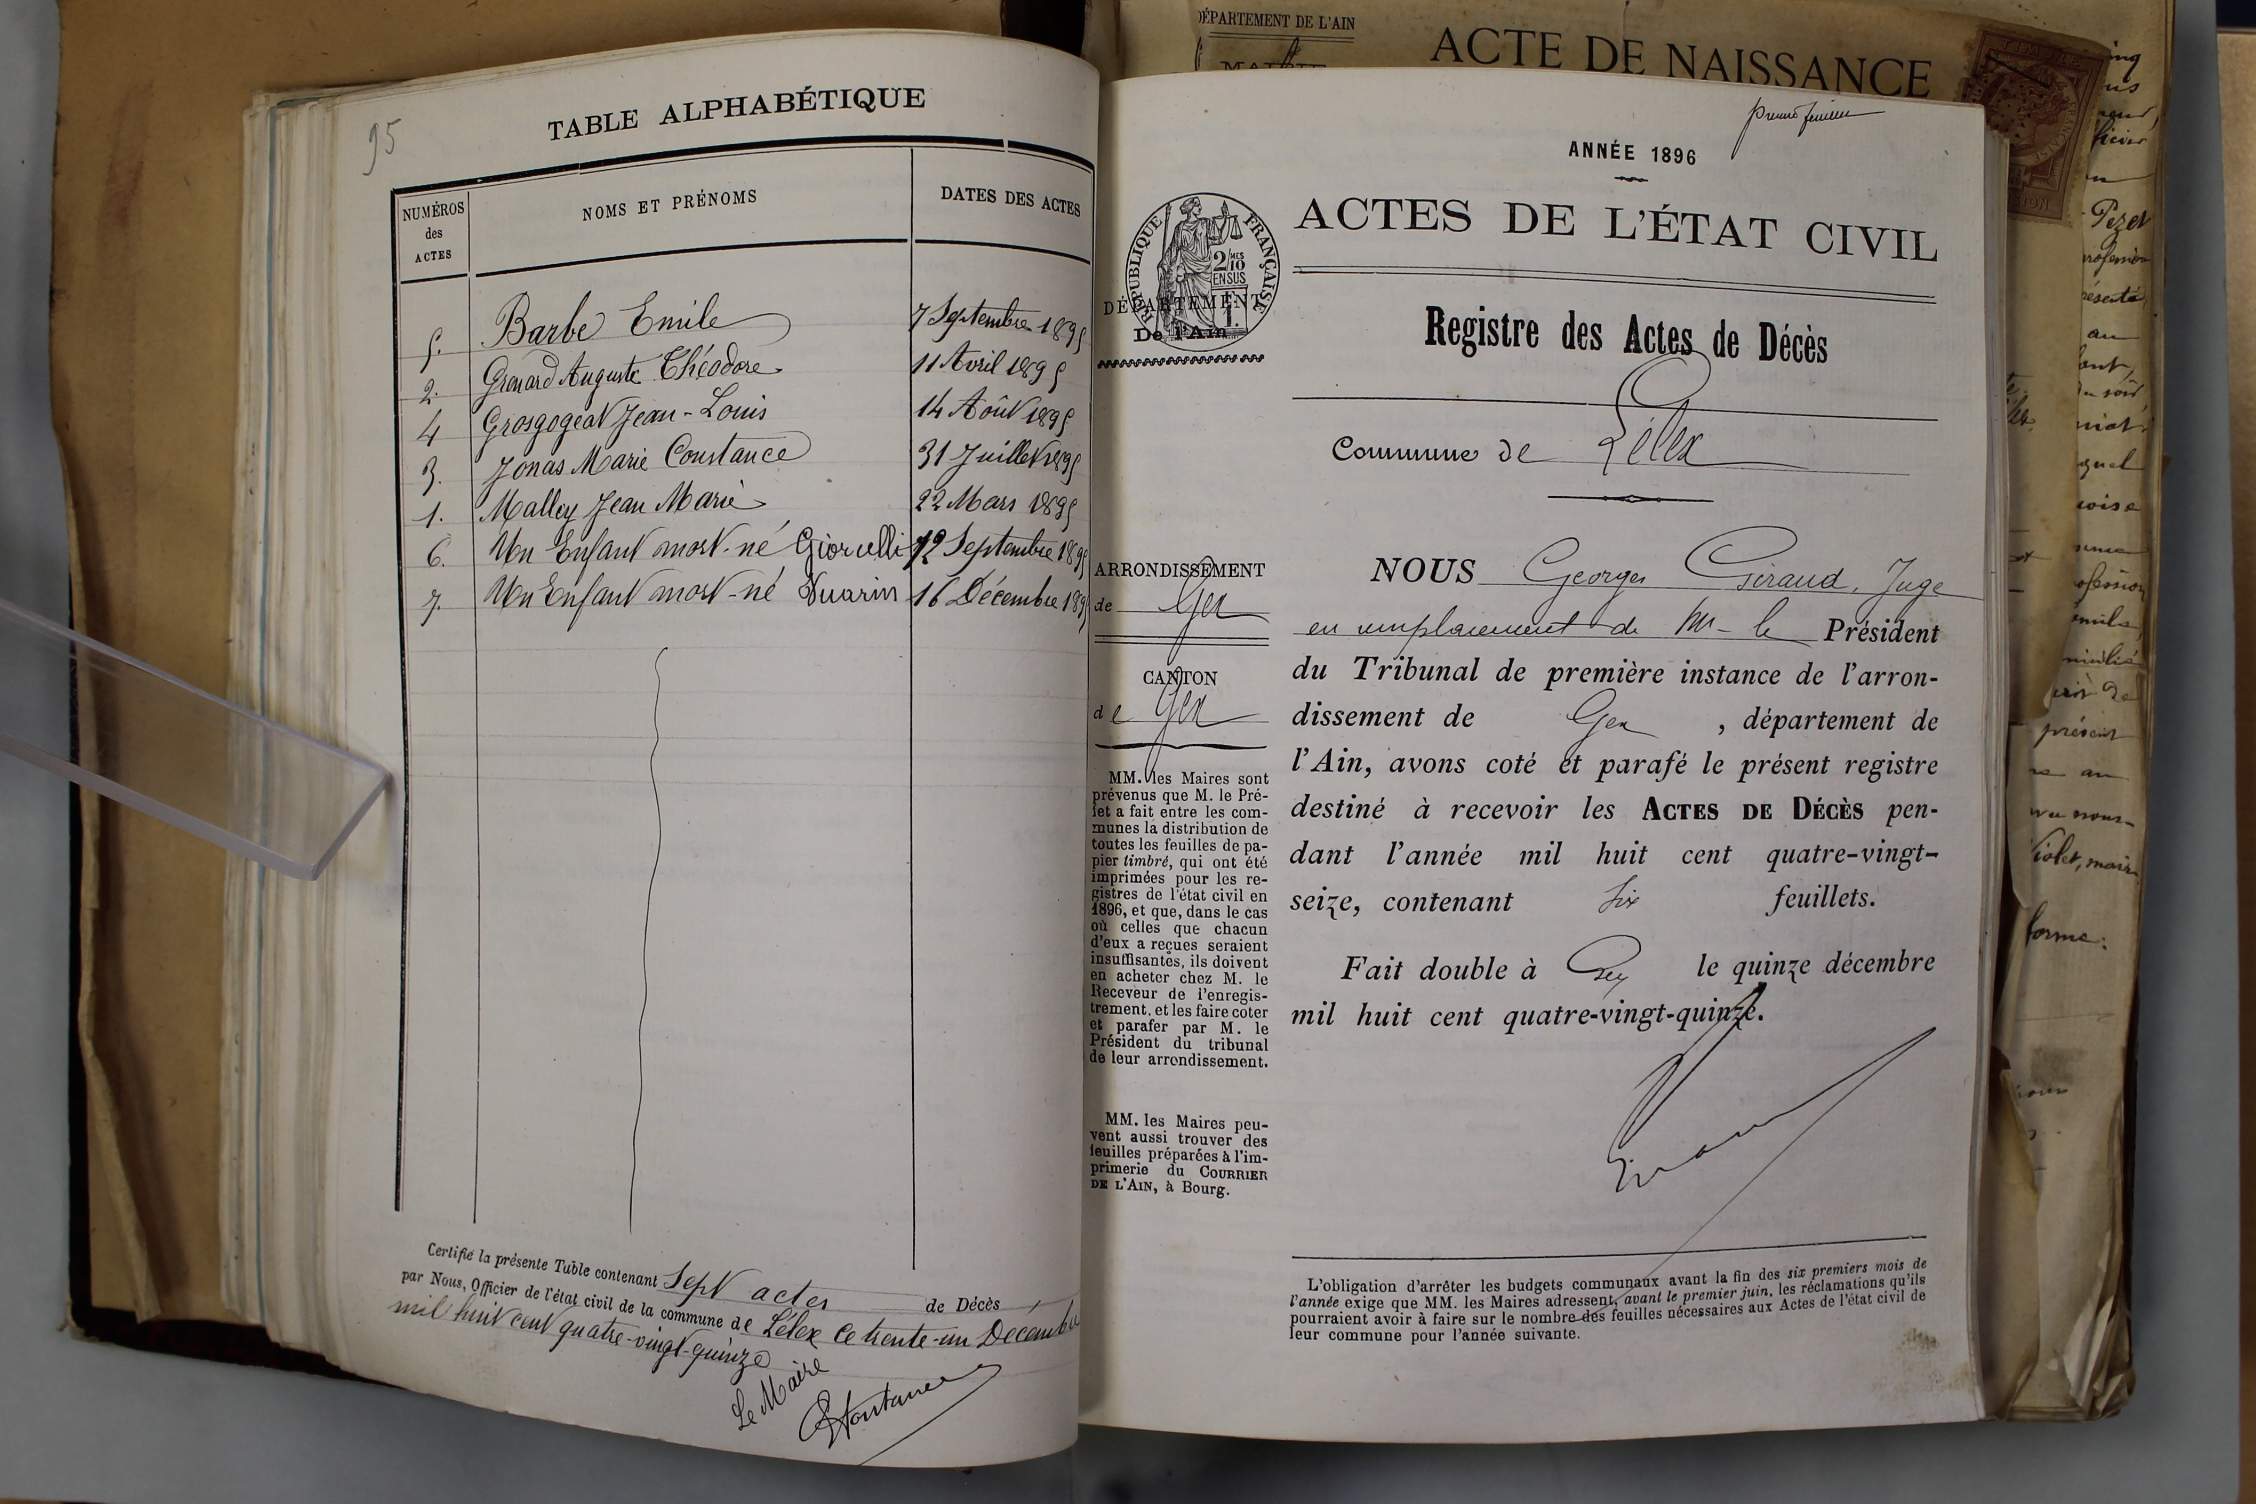 95
TABLE ALPHABÉTIQUE
NUMÉROS des ACTES
NOMS ET PRÉNOMS
DATES DES ACTES
5. Barbe Emile 7 Septembre 1895
2. Grenard Auguste Théodore 11 Avril 1895
4 Grosgogeat Jean-Louis 14 Août 1895
3. Jonas Marie Constance 31 Juillet 1895
1. Malley Jean Marie 22 Mars 1895
6. Un Enfant mort-né Giorcelli 12 Septembre 1895
7. Un Enfant mort-né Vuarin 16 Décembre 189
Certifié la présente Table contenant Sept actes de Décès,
par Nous, Officier de l'état civil de la commune de Lélex ce trente-un Décembre
mil huit cent quatre-vingt-quinze
Le Maire
DÉPARTEMENT DE L'AIN
MAIRIE
ACTE DE NAISSANCE
premier feuillet
ANNÉE 1896
ACTES DE L'ÉTAT CIVIL
RÉPUBLIQUE FRANÇAISE
2/10 MES
EN SUS
DÉPARTEMENT
De l'Ain
Registre des Actes de Décès
Commune de Lélex
ARRONDISSEMENT
de Gex
CANTON
de Gex
MM. les Maires sont
prévenus que M. le Pré-
fet a fait entre les com-
munes la distribution de
toutes les feuilles de pa-
pier timbré, qui ont été
imprimées pour les re-
gistres de l'état civil en
1896, et que, dans le cas
où celles que chacun
d'eux a reçues seraient
insuffisantes, ils doivent
en acheter chez M. le
Receveur de l'enregis-
trement, et les faire coter
et parafer par M. le
Président du tribunal
de leur arrondissement.
MM. les Maires peu-
vent aussi trouver des
feuilles préparées à l'im-
primerie du COURRIER
DE L'AIN, à Bourg.
NOUS Georges Giraud, Juge
en remplacement de Mr le Président
du Tribunal de première instance de l'arron-
dissement de Gex, département de
l'Ain, avons coté et parafé le présent registre
destiné à recevoir les ACTES DE DÉCÈS pen-
dant l'année mil huit cent quatre-vingt-
seize, contenant six feuillets.
Fait double à Gex le quinze décembre
mil huit cent quatre-vingt-quinze.
L'obligation d'arrêter les budgets communaux avant la fin des six premiers mois de
l'année exige que MM. les Maires adressent, avant le premier juin, les réclamations qu'ils
pourraient avoir à faire sur le nombre des feuilles nécessaires aux Actes de l'état civil de
leur commune pour l'année suivante.
Pezet
présent
Violet, maire
forme.